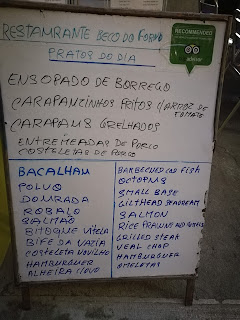 RESTAURANTE BECO DO FORNO
PRATOS DO DIA
RECOMMENDED
tripadvisor
ENSOPADO DE BORREGO
CARAPAUZINHOS FRITOS C/ARROZ DE
TOMATE
CARAPAUS GRELHADOS
ENTREMEADAS DE PORCO
COSTELETAS DE PORCO
BACALHAU
POLVO
DOURADA
ROBALO
SALMÃO
BITOQUE VITELA
BIFE DA VAZIA
COSTELETA NOVILHO
HAMBURGUER
ALHEIRA C/OVO
BARBECUED COD FISH
OCTOPUS
SMALL BASE
GILTHEAD SEABREAM
SALMON
RICE PRAWNS AND
GRILLED STEAK
VEAL CHOP
HAMBURGUER
OMELETAS